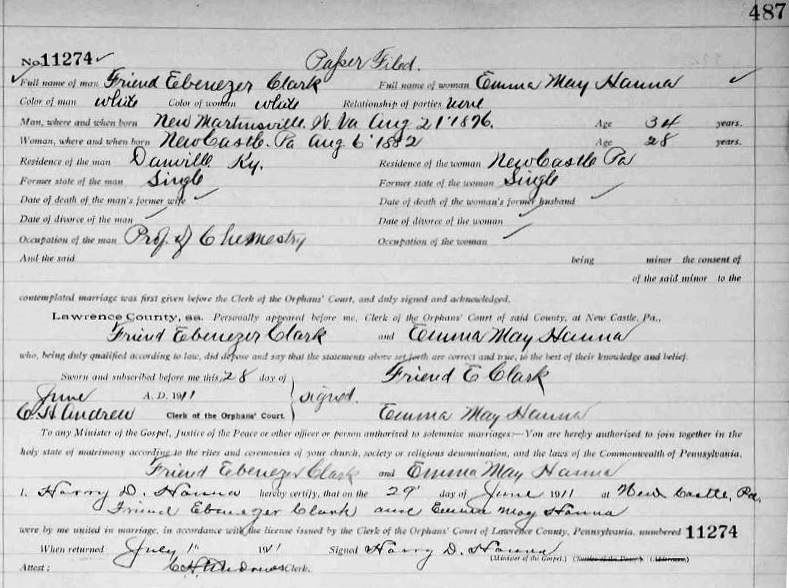 487
No. 11274 Paper Filed.
Full name of man Friend Ebenezer Clark Full name of woman Emma May Hanna
Color of man white Color of woman white Relationship of parties none
Man, where and when born New Martinsville, W. Va Aug 21' 1876. Age 34 years.
Woman, where and when born New Castle, Pa Aug 6' 1882 Age 28 years.
Residence of the man Danville Ky. Residence of the woman New Castle Pa
Former state of the man Single Former state of the woman Single
Date of death of the man's former wife Date of death of the woman's former husband
Date of divorce of the man Date of divorce of the woman
Occupation of the man Prof. of Chemestry Occupation of the woman
And the said being minor the consent of
of the said minor to the
contemplated marriage was first given before the Clerk of the Orphans' Court, and duly signed and acknowledged.
Lawrence County, ss. Personally appeared before me, Clerk of the Orphans' Court of said County, at New Castle, Pa.,
Friend Ebenezer Clark and Emma May Hanna
who, being duly qualified according to law, did depose and say that the statements above set forth are correct and true, to the best of their knowledge and belief.
Sworn and subscribed before me this 28 day of Friend E Clark
June A. D. 1911 signed.
C. H. Andrew Clerk of the Orphans' Court. Emma May Hanna
To any Minister of the Gospel, Justice of the Peace or other officer or person authorized to solemnize marriages:—You are hereby authorized to join together in the
holy state of matrimony according to the rites and ceremonies of your church, society or religious denomination, and the laws of the Commonwealth of Pennsylvania.
Friend Ebenezer Clark and Emma May Hanna
I, Harry D. Hanna hereby certify, that on the 29' day of June 1911 at New Castle, Pa,
Friend Ebenezer Clark and Emma May Hanna
were by me united in marriage, in accordance with the license issued by the Clerk of the Orphans' Court of Lawrence County, Pennsylvania, numbered 11274
When returned July 1' 1911 Signed Harry D. Hanna
(Minister of the Gospel.) (Justice of the Peace.) (Alderman.)
Attest: C H Andrews Clerk.